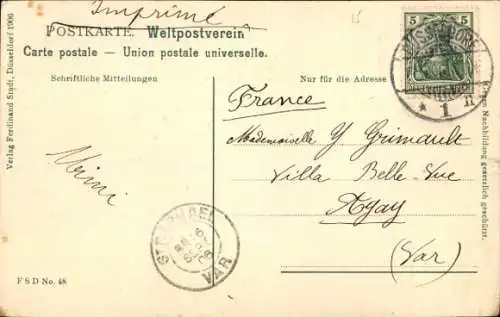 Imprimé
POSTKARTE. Weltpostverein
Carte postale — Union postale universelle.
Schriftliche Mitteilungen
Nur für die Adresse
5 5
* 1 n
France
Mademoiselle Y Grimault
Villa Belle-Vue
Agay
(Var)
VAR
F S D No. 48
Verlag Ferdinand Stadt, Düsseldorf 1906
Nachbildung gesetzlich geschützt.